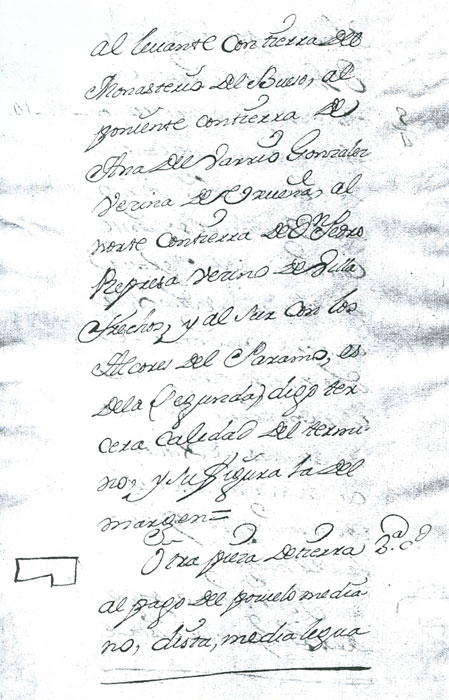 al levante con tierra del
Monasterio del Bueso, al
poniente con tierra de
Ana del Varrio Gonzalez
vecina de Urueña, al
norte con tierra de Dn. Pedro
Represa vecino de Villa
frechos, y al sur con los
Alcores del Paramo, es
dela (segunda) digo ter
cera calidad del termi
no, y su figura la del
margen=
Otra pieza de tierra 3.a c.d
al pago del pozuelo media
no, dista, media legua